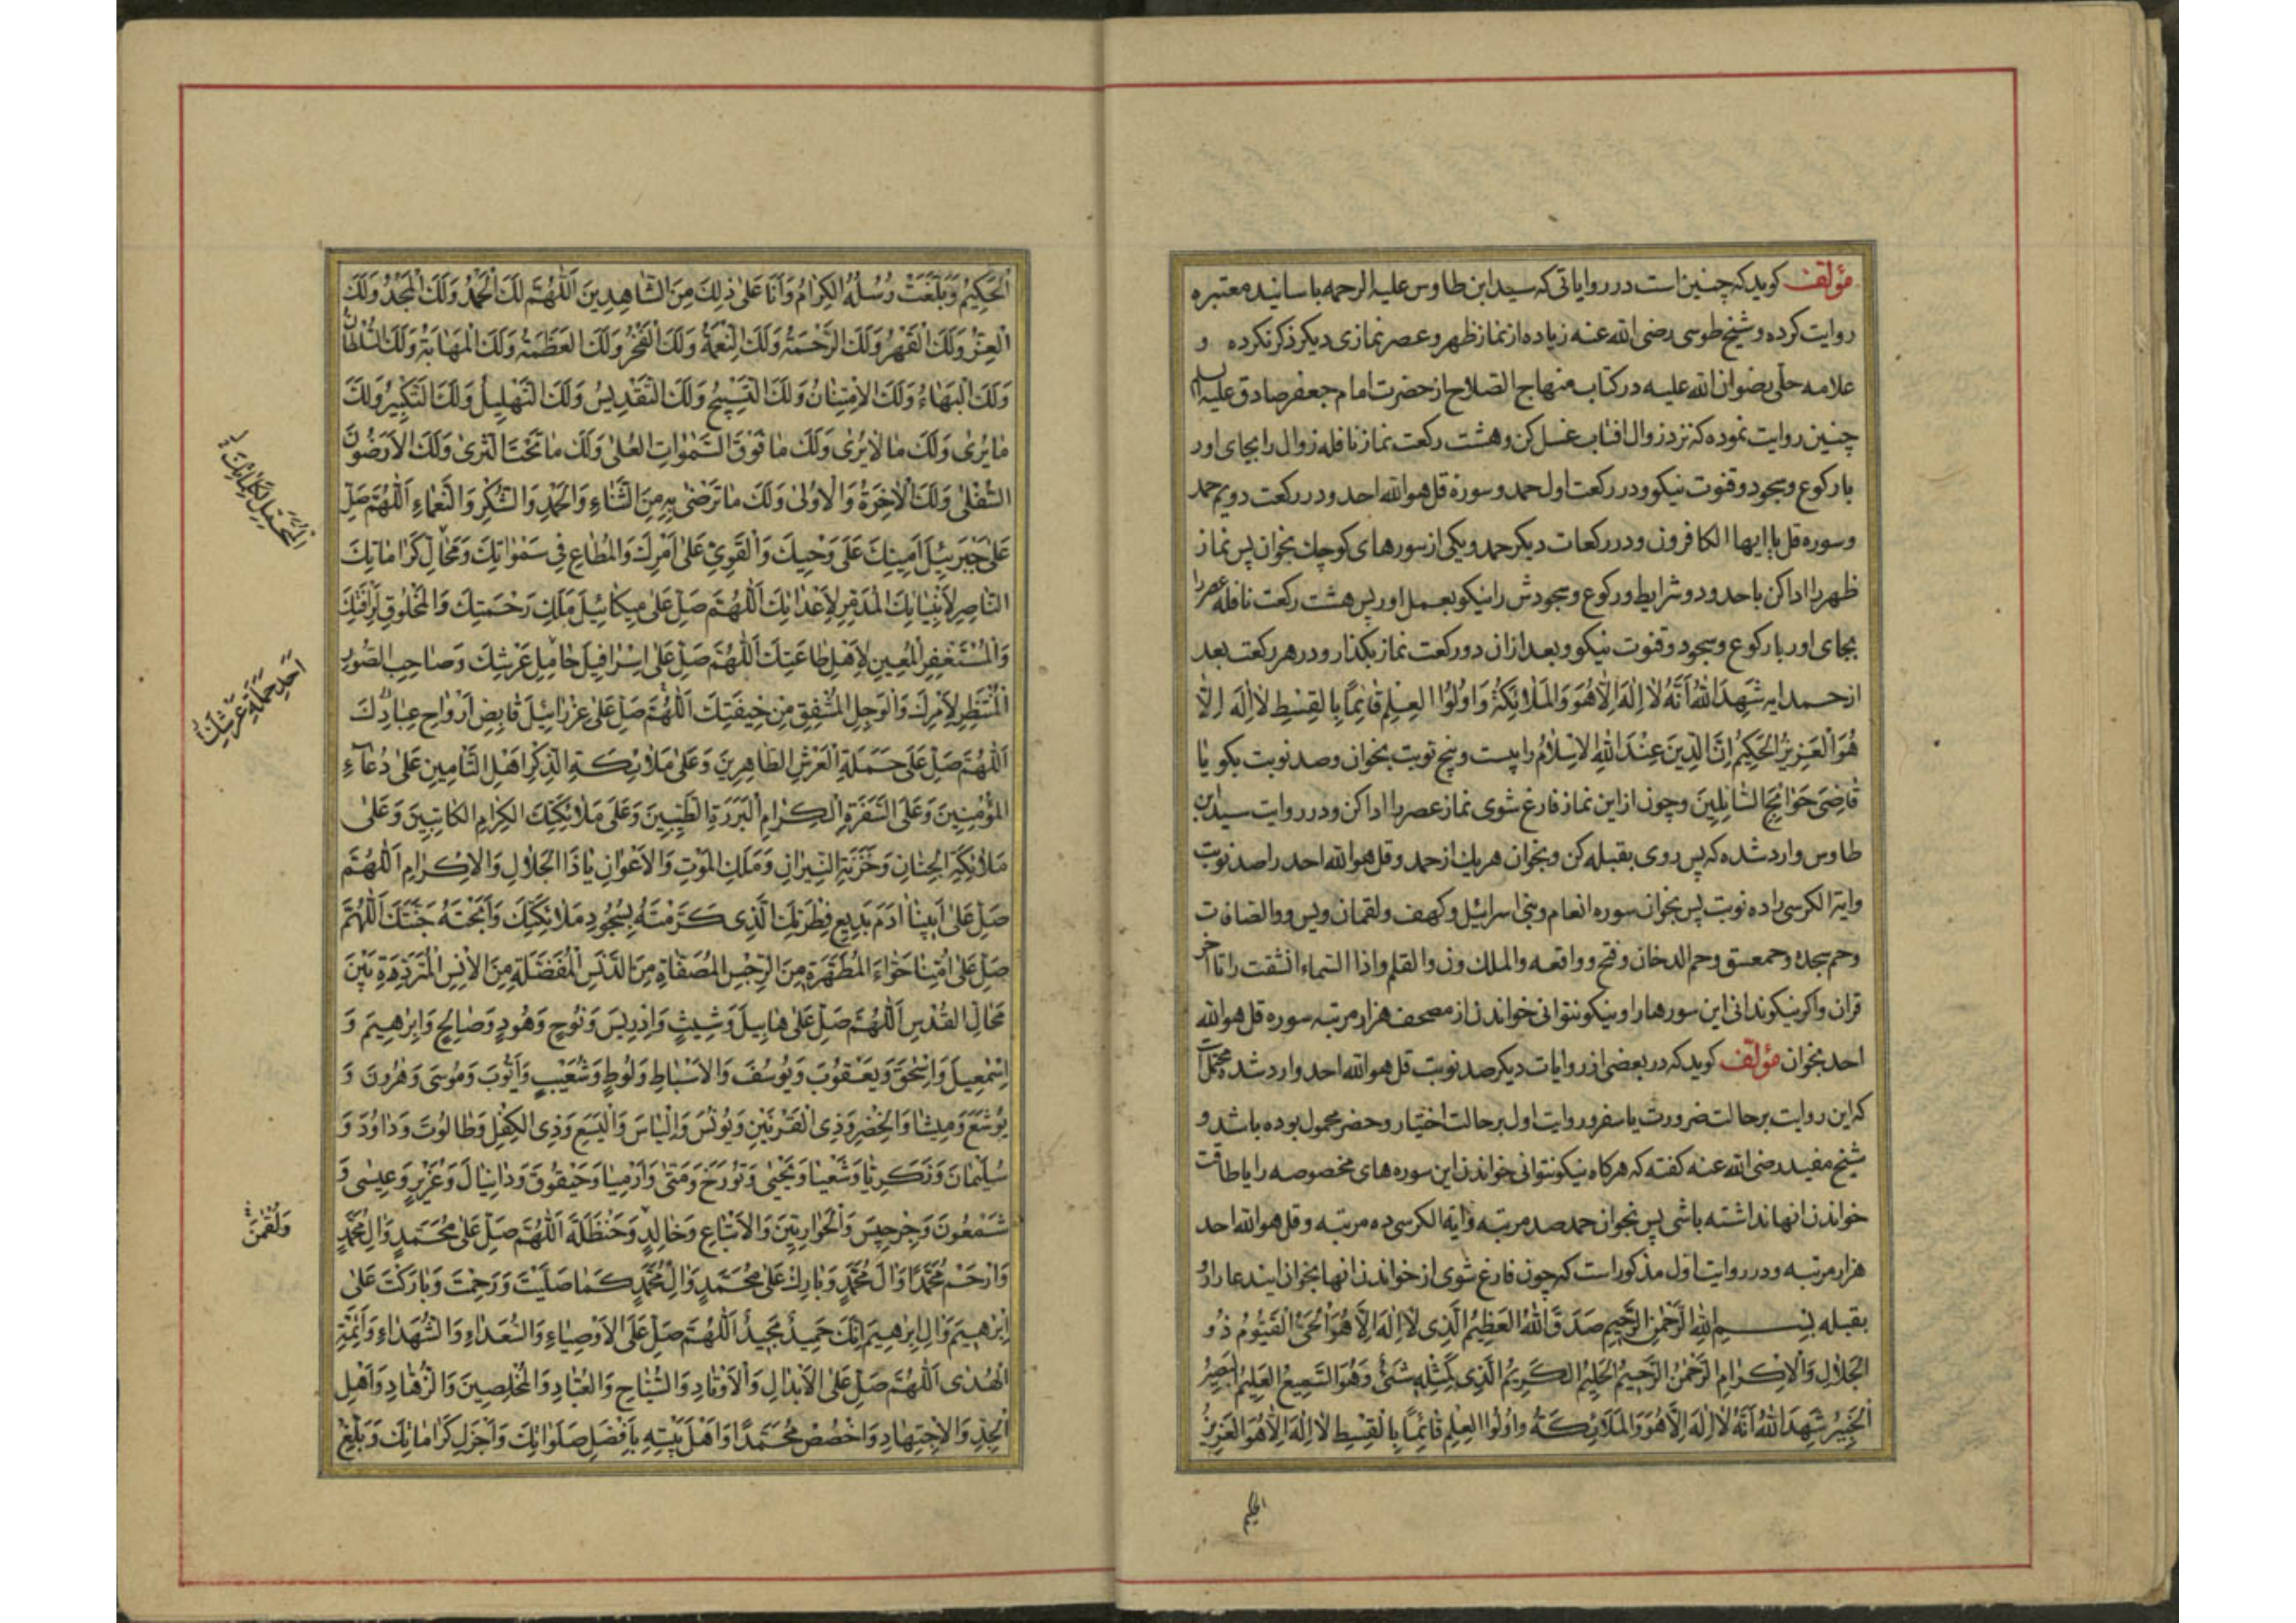 مؤلف کوید که چنین است در روایاتی که سید ابن طاوس علیه الرحمه باسانید معتبره
روایت کرده و شیخ طوسی رضی الله عنه زیاده از نماز ظهر و عصر نمازی دیکر ذکر نکرده و
علامه حلی رضوان الله علیه در کتاب منهاج الصلاح از حضرت امام جعفر صادق علیه السلم
چنین روایت نموده که نزد زوال افتاب غسل کن و هشت رکعت نماز نافله زوال را بجای اور
با رکوع و سجود و قنوت نیکو و در رکعت اول حمد و سوره قل هو الله احد و در رکعت دویم حمد
و سوره قل یا ایها الکافرون و در رکعات دیکر حمد و یکی از سورهای کوچك بخوان پس نماز
ظهر را ادا کن با حدود و شرایط و رکوع و سجودش را نیکو بعمل اور پس هشت رکعت نافله عصر را
بجای اور با رکوع و سجود و قنوت نیکو و بعد از ان دو رکعت نماز بکذار و در هر رکعت بعد
از حمد ایه شَهِدَ اللهُ اَنَّهُ لا اِلٰهَ اِلّا هُوَ وَالمَلائِکَةُ وَاُولُوا العِلمِ قائِماً بِالقِسطِ لا اِلٰهَ اِلّا
هُوَ العَزیزُ الحَکیمُ اِنَّ الدّینَ عِندَ اللهِ الاِسلامُ را بیست و پنج نوبت بخوان و صد نوبت بکو یا
قاضِیَ حَوائِجِ السّائِلینَ و چون از این نماز فارغ شوی نماز عصر را ادا کن و در روایت سید ابن
طاوس وارد شده که پس روی بقبله کن و بخوان هر یك از حمد و قل هو الله احد را صد نوبت
و ایة الکرسی را ده نوبت پس بخوان سوره انعام و بنی اسرائیل و کهف و لقمان و یس و والصافات
و حم سجده و حمعسق و حم الدخان و فتح و واقعه و الملك و ن و القلم و اذا السماء انشقت را تا اخر
قران و اکر نیکو ندانی این سورها را و نیکو نتوانی خواندن از مصحف هزار مرتبه سوره قل هو الله
احد بخوان مؤلف کوید که در بعضی از روایات دیکر صد نوبت قل هو الله احد وارد شده محتمل است
که این روایت بر حالت ضرورت یا سفر و روایت اول بر حالت اختیار و حضر محمول بوده باشد و
شیخ مفید رضی الله عنه کفته که هرکاه نیکو نتوانی خواندن این سوره های مخصوصه را یا طاقت
خواندن انها نداشته باشی پس بخوان حمد صد مرتبه و ایة الکرسی ده مرتبه و قل هو الله احد
هزار مرتبه و در روایت اول مذکور است که چون فارغ شوی از خواندن انها بخوان ایندعا را رو
بقبله بِسمِ اللهِ الرَّحمٰنِ الرَّحیمِ صَدَقَ اللهُ العَظیمُ الَّذی لا اِلٰهَ اِلّا هُوَ الحَیُّ القَیُّومُ ذُو
الجَلالِ وَالاِکرامِ الرَّحمٰنُ الرَّحیمُ الحَلیمُ الکَریمُ الَّذی لَیسَ کَمِثلِهِ شَیئٌ وَهُوَ السَّمیعُ العَلیمُ البَصیرُ
الخَبیرُ شَهِدَ اللهُ اَنَّهُ لا اِلٰهَ اِلّا هُوَ وَالمَلائِکَةُ وَاُولُوا العِلمِ قائِماً بِالقِسطِ لا اِلٰهَ اِلّا هُوَ العَزیزُ
الحکیم
الحَکیمُ وَبَلَّغَت رُسُلُهُ الکِرامُ وَاَنَا عَلیٰ ذٰلِكَ مِنَ الشّاهِدینَ اَللّٰهُمَّ لَكَ الحَمدُ وَلَكَ المَجدُ وَلَكَ
العِزُّ وَلَكَ القَهرُ وَلَكَ الرَّحمَةُ وَلَكَ النِّعمَةُ وَلَكَ الفَخرُ وَلَكَ العَظَمَةُ وَلَكَ المَهابَةُ وَلَكَ السُّلطانُ
وَلَكَ البَهاءُ وَلَكَ الاِمتِنانُ وَلَكَ التَّسبیحُ وَلَكَ التَّقدیسُ وَلَكَ التَّهلیلُ وَلَكَ التَّکبیرُ وَلَكَ
ما یُریٰ وَلَكَ ما لا یُریٰ وَلَكَ ما فَوقَ السَّمٰواتِ العُلیٰ وَلَكَ ما تَحتَ الثَّریٰ وَلَكَ الاَرَضُونَ
السُّفلیٰ وَلَكَ الاٰخِرَةُ وَالاُولیٰ وَلَكَ ما تَرضیٰ بِهِ مِنَ الثَّناءِ وَالحَمدِ وَالشُّکرِ وَالنَّعماءِ اَللّٰهُمَّ صَلِّ
عَلیٰ جَبرَئیلَ اَمینِكَ عَلیٰ وَحیِكَ وَالقَوِیِّ عَلیٰ اَمرِكَ وَالمُطاعِ فی سَمٰواتِكَ وَمَحالِّ کَراماتِكَ
النّاصِرِ لِاَنبِیائِكَ المُدَمِّرِ لِاَعدائِكَ اَللّٰهُمَّ صَلِّ عَلیٰ میکائیلَ مَلَكِ رَحمَتِكَ وَالمَخلُوقِ لِرَأفَتِكَ
وَالمُستَغفِرِ المُعینِ لِاَهلِ طاعَتِكَ اَللّٰهُمَّ صَلِّ عَلیٰ اِسرافیلَ حامِلِ عَرشِكَ وَصاحِبِ الصُّورِ
المُنتَظِرِ لِاَمرِكَ وَالوَجِلِ المُشفِقِ مِن خیفَتِكَ اَللّٰهُمَّ صَلِّ عَلیٰ عِزرائیلَ قابِضِ اَرواحِ عِبادِكَ
اَللّٰهُمَّ صَلِّ عَلیٰ حَمَلَةِ العَرشِ الطّاهِرینَ وَعَلیٰ مَلائِکَةِ الذِّکرِ اَهلِ التَّأمینِ عَلیٰ دُعاءِ
المُؤمِنینَ وَعَلَی السَّفَرَةِ الکِرامِ البَرَرَةِ الطَّیِّبینَ وَعَلیٰ مَلائِکَتِكَ الکِرامِ الکاتِبینَ وَعَلیٰ
مَلائِکَةِ الجِنانِ وَخَزَنَةِ النّیرانِ وَمَلَكِ المَوتِ وَالاَعوانِ یا ذَا الجَلالِ وَالاِکرامِ اَللّٰهُمَّ
صَلِّ عَلیٰ اَبینا اٰدَمَ بَدیعِ فِطرَتِكَ الَّذی کَرَّمتَهُ بِسُجُودِ مَلائِکَتِكَ وَاَبَحتَهُ جَنَّتَكَ اَللّٰهُمَّ
صَلِّ عَلیٰ اُمِّنا حَوّاءَ المُطَهَّرَةِ مِنَ الرِّجسِ المُصَفّاةِ مِنَ الدَّنَسِ المُفَضَّلَةِ مِنَ الاِنسِ المُتَرَدِّدَةِ بَینَ
مَحالِّ القُدسِ اَللّٰهُمَّ صَلِّ عَلیٰ هابیلَ وَشیثٍ وَاِدریسَ وَنُوحٍ وَهُودٍ وَصالِحٍ وَاِبرٰهیمَ وَ
اِسمٰعیلَ وَاِسحٰقَ وَیَعقُوبَ وَیُوسُفَ وَالاَسباطِ وَلُوطٍ وَشُعَیبٍ وَاَیُّوبَ وَمُوسیٰ وَهٰرُونَ وَ
یُوشَعَ وَمیشا وَالخِضرِ وَذِی القَرنَینِ وَیُونُسَ وَاِلیاسَ وَالیَسَعَ وَذِی الکِفلِ وَطالُوتَ وَداوُدَ وَ
سُلَیمٰنَ وَزَکَرِیّا وَشَعیا وَیَحییٰ وَتُورَخَ وَمَتّیٰ وَاَرمِیا وَحَیقُوقَ وَدانِیالَ وَعُزَیرٍ وَعیسیٰ وَ
شَمعُونَ وَجِرجیسَ وَالحَوارِیّینَ وَالاَتباعِ وَخالِدٍ وَحَنظَلَةَ اَللّٰهُمَّ صَلِّ عَلیٰ مُحَمَّدٍ وَاٰلِ مُحَمَّدٍ
وَارحَم مُحَمَّداً وَاٰلَ مُحَمَّدٍ وَبارِك عَلیٰ مُحَمَّدٍ وَاٰلِ مُحَمَّدٍ کَما صَلَّیتَ وَرَحِمتَ وَبارَکتَ عَلیٰ
اِبرٰهیمَ وَاٰلِ اِبرٰهیمَ اِنَّكَ حَمیدٌ مَجیدٌ اَللّٰهُمَّ صَلِّ عَلَی الاَوصِیاءِ وَالسُّعَداءِ وَالشُّهَداءِ وَاَئِمَّةِ
الهُدیٰ اَللّٰهُمَّ صَلِّ عَلَی الاَبدالِ وَالاَوتادِ وَالسُّیّاحِ وَالعُبّادِ وَالمُخلِصینَ وَالزُّهّادِ وَاَهلِ
الجِدِّ وَالاِجتِهادِ وَاخصُص مُحَمَّداً وَاَهلَ بَیتِهِ بِاَفضَلِ صَلَواتِكَ وَاَجزَلِ کَراماتِكَ وَبَلِّغ
المُتَحَمِّلِ لِکَلِماتِكَ
اَحَدِ حَمَلَةِ عَرشِكَ
وَلُقمٰنَ